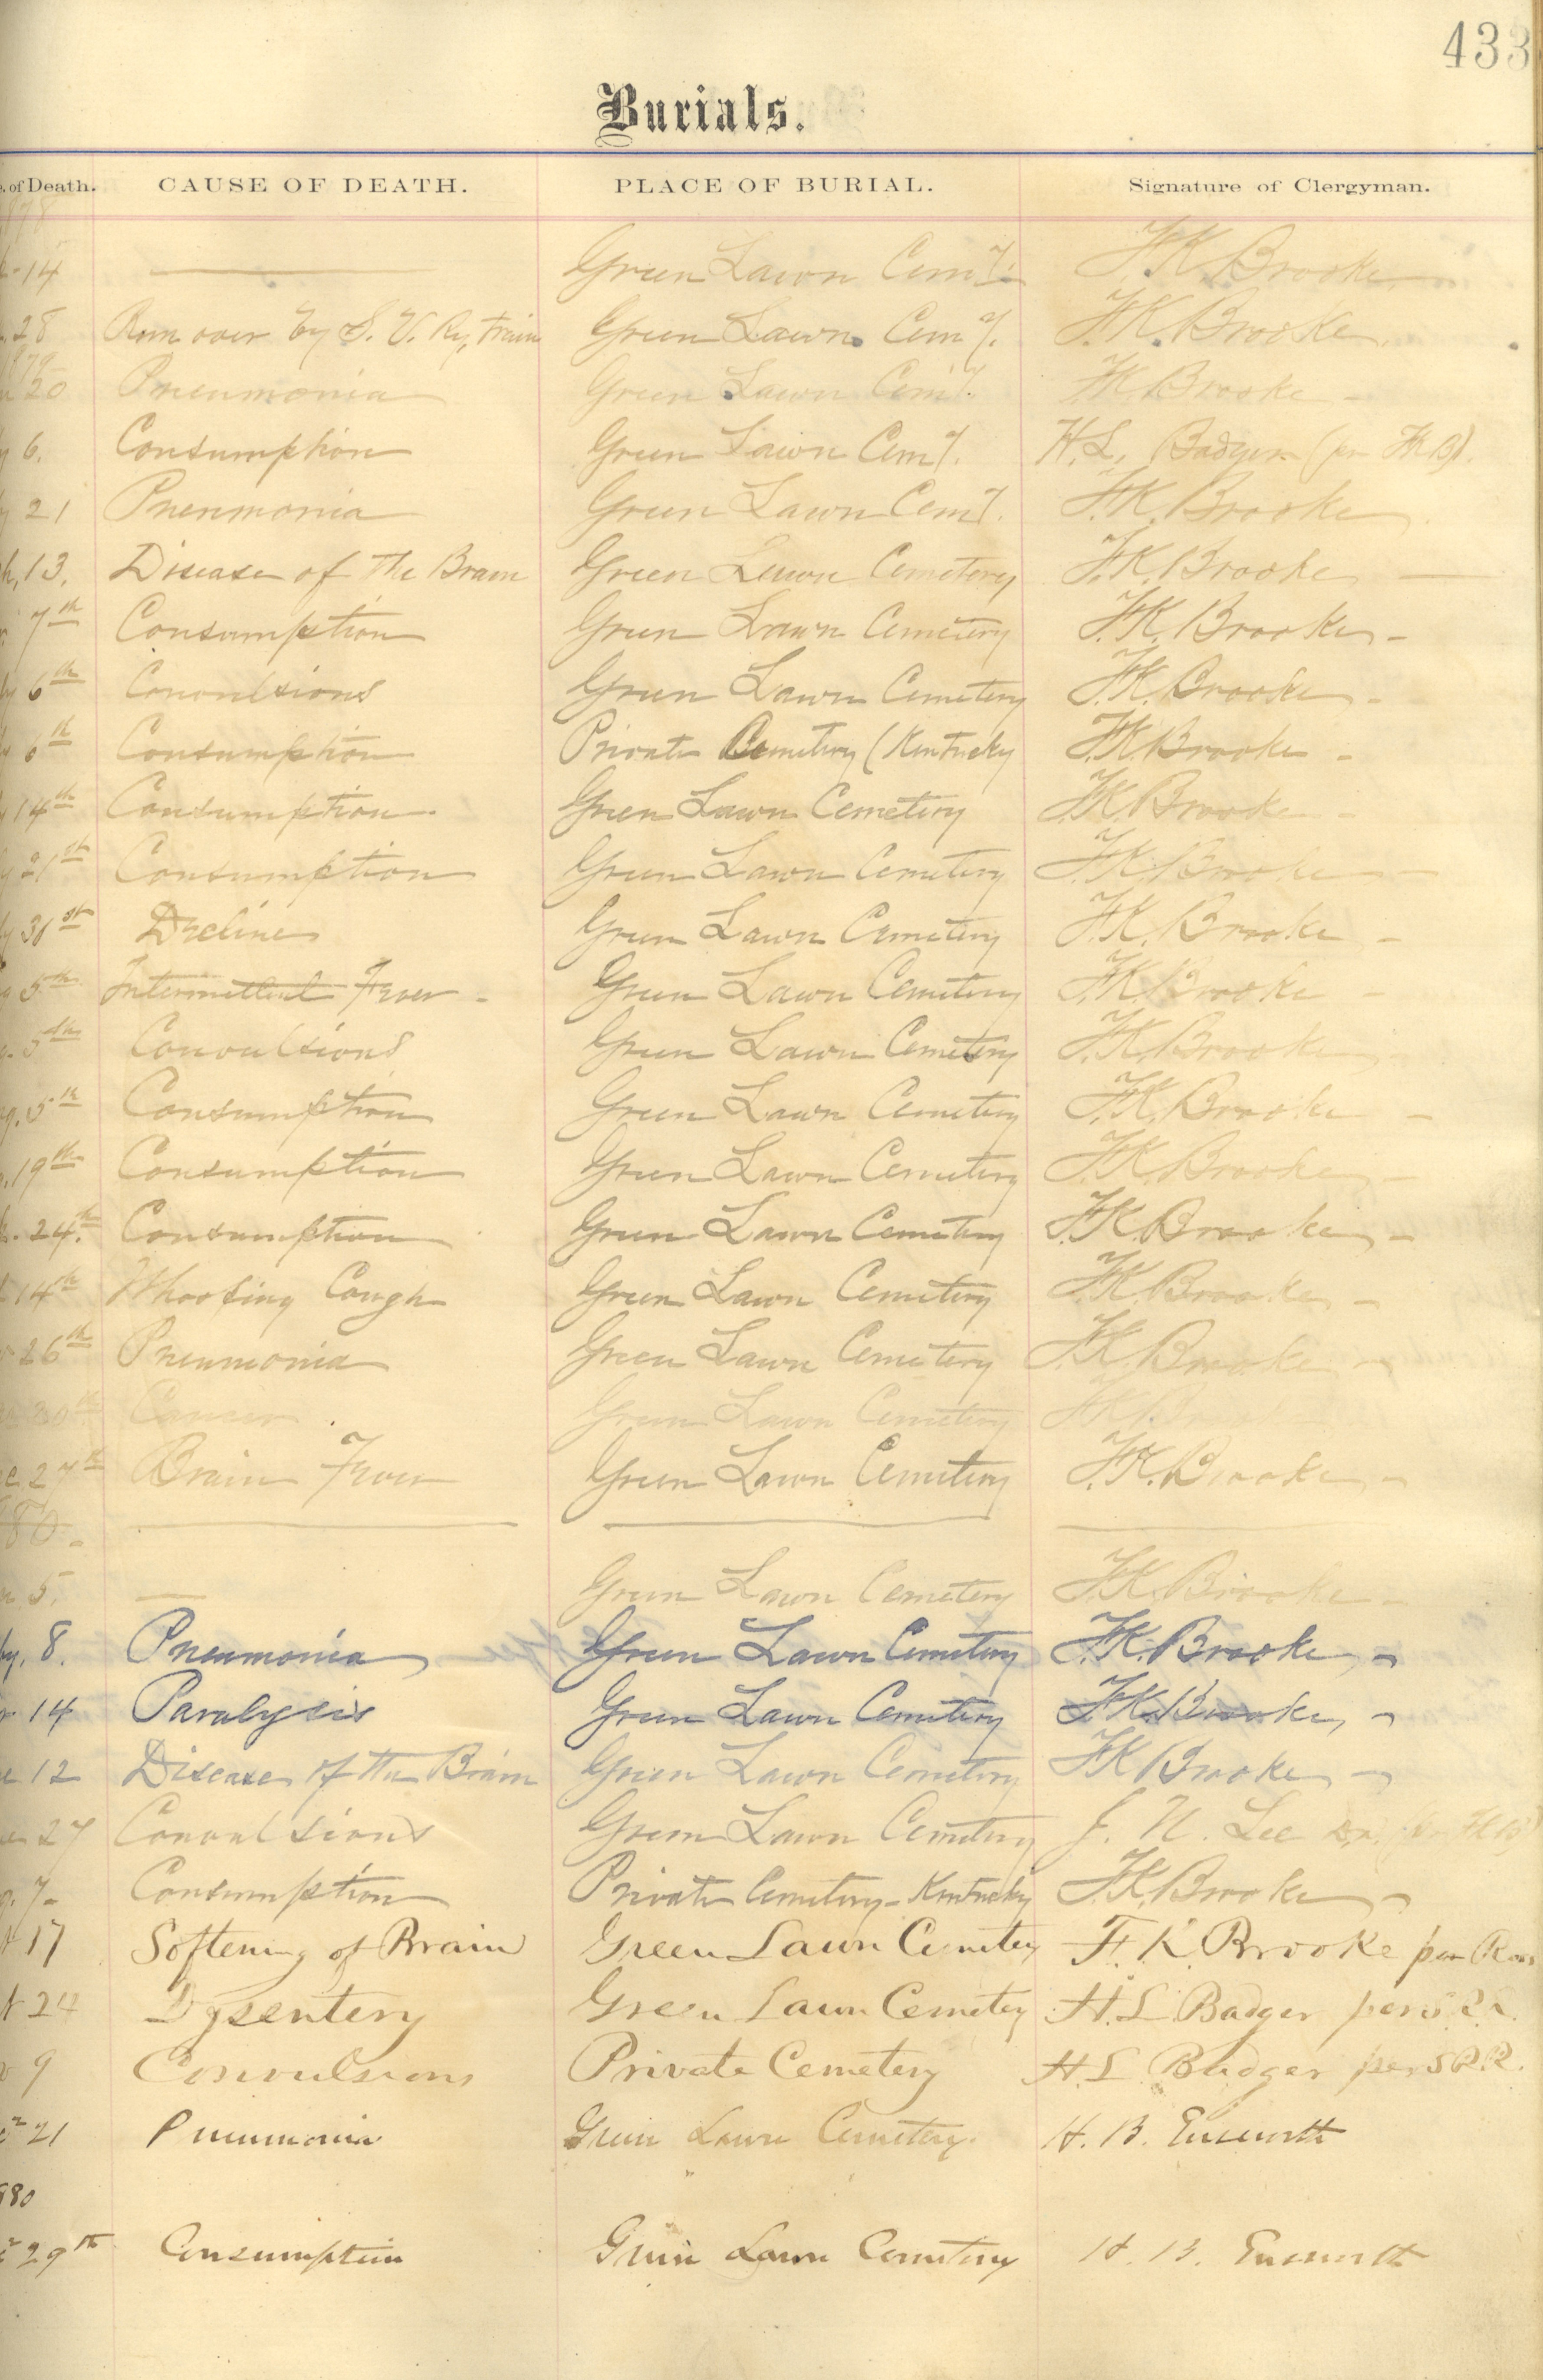 433
Burials.
of Death. CAUSE OF DEATH. PLACE OF BURIAL. Signature of Clergyman.
14 Green Lawn Cem'y. F.K. Brooke
28 Run over by S. V. Ry. train Green Lawn Cem'y. F.K. Brooke
20 Pneumonia Green Lawn Cem'y. F.K. Brooke -
6. Consumption Green Lawn Cem'y. H. L. Badger (per FKB).
21 Pneumonia Green Lawn Cem'y. F.K. Brooke
h, 13, Disease of the Brain Green Lawn Cemetery F.K. Brooke
7th Consumption Green Lawn Cemetery F.K. Brooke -
6th Convulsions Green Lawn Cemetery F.K. Brooke -
6th Consumption Private Cemetery (Kentucky F.K. Brooke -
14th Consumption. Green Lawn Cemetery F.K. Brooke -
21st Consumption Green Lawn Cemetery F.K. Brooke -
31st Decline Green Lawn Cemetery F.K. Brooke -
5th Intermittent Fever - Green Lawn Cemetery F.K. Brooke -
5th Convulsions Green Lawn Cemetery F.K. Brooke -
g. 5th Consumption Green Lawn Cemetery F.K. Brooke -
19th Consumption Green Lawn Cemetery F.K. Brooke -
24th Consumption Green Lawn Cemetery F.K. Brooke -
14th Whooping Cough Green Lawn Cemetery F.K. Brooke -
26th Pneumonia Green Lawn Cemetery F.K. Brooke -
Cancer Green Lawn Cemetery F.K. Brooke
c. 27th Brain Fever Green Lawn Cemetery F.K. Brooke -
80.
5. Green Lawn Cemetery F.K. Brooke -
y. 8. Pneumonia Green Lawn Cemetery F.K. Brooke -
14 Paralysis Green Lawn Cemetery F.K. Brooke, -
e 12 Disease of the Brain Green Lawn Cemetery F.K. Brooke -
27 Convulsions Green Lawn Cemetery J. N. Lee
7- Consumption Private Cemetery - Kentucky F.K. Brooke -
17 Softening of Brain Green Lawn Cemetery F. K. Brooke per
24 Dysentery Green Lawn Cemetery H. L. Badger per S.R.R.
9 Convulsions Private Cemetery H. L. Badger per S.R.R.
21 Pneumonia Green Lawn Cemetery. H. B. Ensworth
880
29th Consumption Green Lawn Cemetery H. B. Ensworth